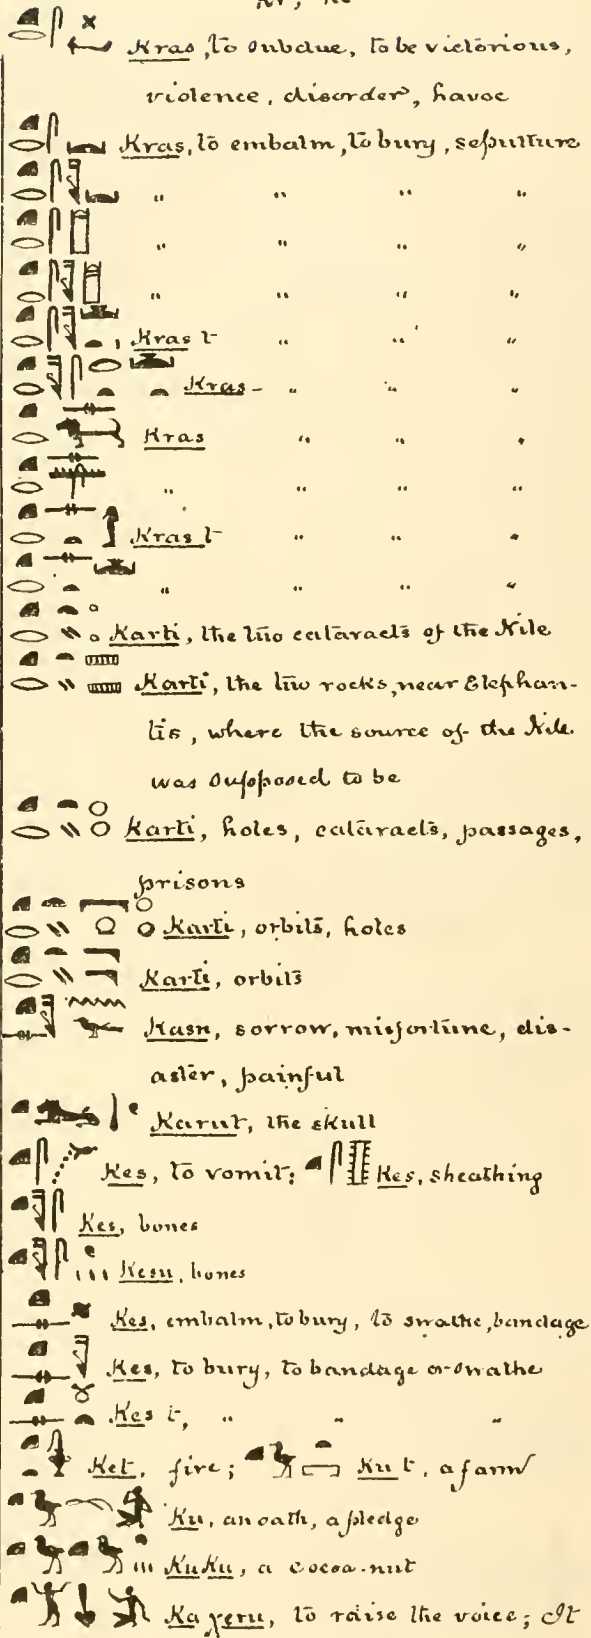 Kras, to subdue, to be victorious,
violence, disorder, havoc
Kras, to embalm, to bury, sepulture
" " " "
" " " "
" " " "
Kras t " " "
Kras- " " "
Kras " " "
" " " "
Kras t " " "
" " " "
Karti, the two cataracts of the Nile
Karti, the two rocks, near Elephan-
tis, where the source of the Nile
was supposed to be
Karti, holes, cataracts, passages,
prisons
Karti, orbits, holes
Karti, orbits
Kasn, sorrow, misfortune, dis-
aster, painful
Karut, the skull
Kes, to vomit; Kes, sheathing
Kes, bones
Kesu, bones
Kes, embalm, to bury, to swathe, bandage
Kes, to bury, to bandage or swathe
Kes t, " " "
Ket, fire; Ku t, a farm
Ku, an oath, a pledge
KuKu, a cocoa-nut
Ka χeru, to raise the voice; It